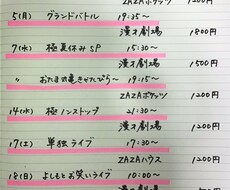 ZAZAポケッツ 1200円
5(月) グランドバトル 19:35〜
漫才劇場 1800円
7(水) 極夏休みSP 15:30〜
漫才劇場 1500円
〃 19:15〜
ZAZAポケッツ 1200円
14(水) 極ノンストップ 21:30〜
漫才劇場 1200円
17(土) 単独ライブ 17:30〜
ZAZAハウス 1200円
18(日) よしもとお笑いライブ 10:00〜